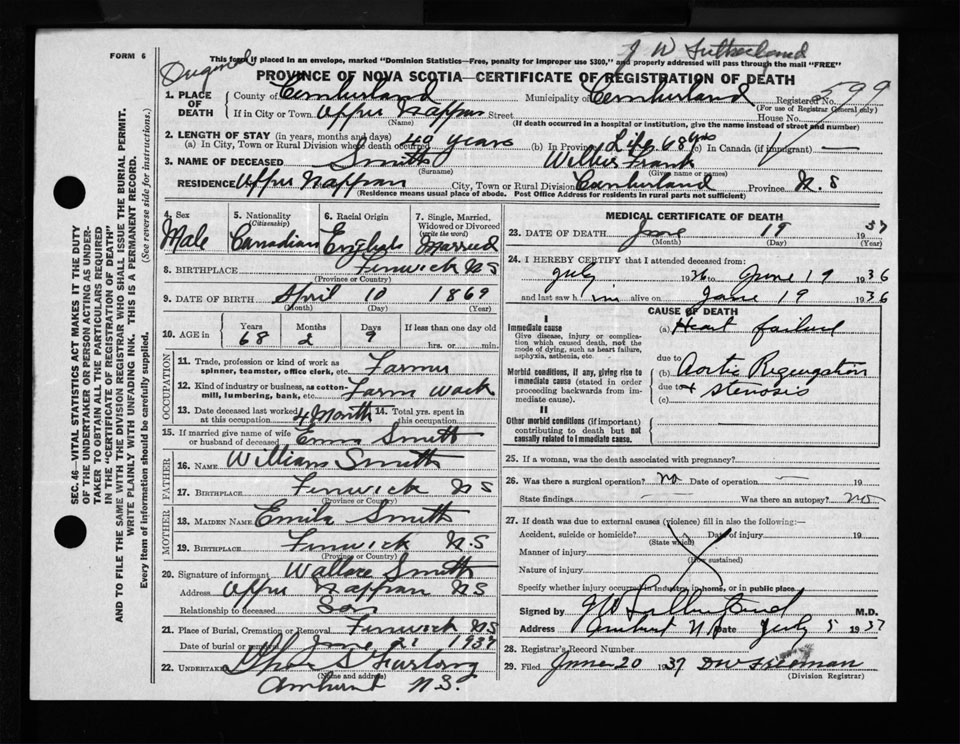 FORM 6
J W Sutherland
This form if placed in an envelope, marked "Dominion Statistics—Free, penalty for improper use $300," and properly addressed will pass through the mail "FREE"
Original
PROVINCE OF NOVA SCOTIA—CERTIFICATE OF REGISTRATION OF DEATH
1. PLACE OF DEATH { County of Cumberland Municipality of Cumberland Registered No. 599
(For use of Registrar General only)
If in City or Town Upper Nappan Street House No.
(Name) (If death occurred in a hospital or institution, give the name instead of street and number)
2. LENGTH OF STAY (in years, months and days)
(a) In City, Town or Rural Division where death occurred 40 years (b) In Province Life 68 yrs (c) In Canada (if immigrant) —
3. NAME OF DECEASED Smith Frank
(Surname) (Given name or names)
RESIDENCE Upper Nappan City, Town or Rural Division Cumberland Province N.S
(Residence means usual place of abode. Post Office Address for residents in rural parts not sufficient)
SEC. 46—VITAL STATISTICS ACT MAKES IT THE DUTY
OF THE UNDERTAKER OR PERSON ACTING AS UNDER-
TAKER TO OBTAIN ALL THE PARTICULARS REQUIRED
IN THE "CERTIFICATE OF REGISTRATION OF DEATH"
AND TO FILE THE SAME WITH THE DIVISION REGISTRAR WHO SHALL ISSUE THE BURIAL PERMIT.
WRITE PLAINLY WITH UNFADING INK. THIS IS A PERMANENT RECORD.
Every item of information should be carefully supplied. (See reverse side for instructions.)
4. Sex Male
5. Nationality (Citizenship) Canadian
6. Racial Origin English
7. Single, Married, Widowed or Divorced (write the word) Married
8. BIRTHPLACE Fenwick NS
(Province or Country)
9. DATE OF BIRTH April 10 1869
(Month) (Day) (Year)
10. AGE in Years 68 Months 2 Days 9 If less than one day old hrs. or min.
OCCUPATION
11. Trade, profession or kind of work as spinner, teamster, office clerk, etc. Farmer
12. Kind of industry or business, as cotton-mill, lumbering, bank, etc. Farm work
13. Date deceased last worked at this occupation 4 Month 14. Total yrs. spent in this occupation
15. If married give name of wife or husband of deceased Emma Smith
FATHER
16. NAME William Smith
17. BIRTHPLACE Fenwick NS
(Province or Country)
MOTHER
18. MAIDEN NAME Smith
19. BIRTHPLACE Fenwick N.S
(Province or Country)
20. Signature of informant Wallace Smith
Address Upper Nappan NS
Relationship to deceased Son
21. Place of Burial, Cremation or Removal Fenwick NS
Date of burial or removal June 21 1937
22. UNDERTAKER Furlong
(Name and address)
Amherst N.S.
MEDICAL CERTIFICATE OF DEATH
23. DATE OF DEATH June 19 1937
(Month) (Day) (Year)
24. I HEREBY CERTIFY that I attended deceased from:
July 1936 to June 19 1936
and last saw h im alive on June 19 1936
CAUSE OF DEATH
I
Immediate cause
Give disease, injury or complication which caused death, not the mode of dying, such as heart failure, asphyxia, asthenia, etc.
(a) Heart failure
due to
Morbid conditions, if any, giving rise to immediate cause (stated in order proceeding backwards from immediate cause).
(b) Aortic Regurgitation
due to + stenosis
(c)
II
Other morbid conditions (if important) contributing to death but not causally related to immediate cause.
25. If a woman, was the death associated with pregnancy?
26. Was there a surgical operation? no Date of operation —
State findings — Was there an autopsy? no
27. If death was due to external causes (violence) fill in also the following:—
Accident, suicide or homicide? Date of injury 19
(State which)
Manner of injury
(How sustained)
Nature of injury
Specify whether injury occurred in industry, in home, or in public place
Signed by J W Sutherland M.D.
Address Amherst N.S Date July 5 1937
28. Registrar's Record Number
29. Filed June 20 1937
(Division Registrar)